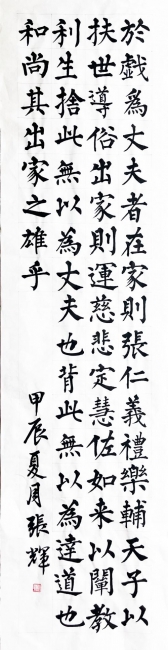 於戲為丈夫者在家則張仁義禮樂輔天子以
扶世導俗出家則運慈悲定慧佐如来以闡教
利生捨此無以為丈夫也背此無以為達道也
和尚其出家之雄乎
甲辰夏月張輝